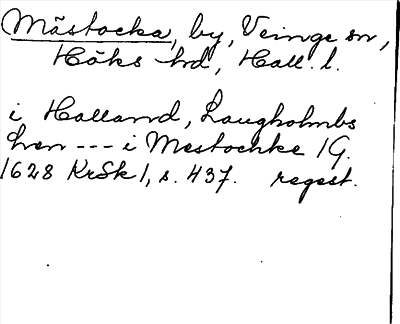 Mästocka, by, Veinge sn,
Höks hd, Hall. l.
i Halland, Laugholmbs
hen --- i Mestochke 1 G.
1628 KrSk 1, s. 437. regest.